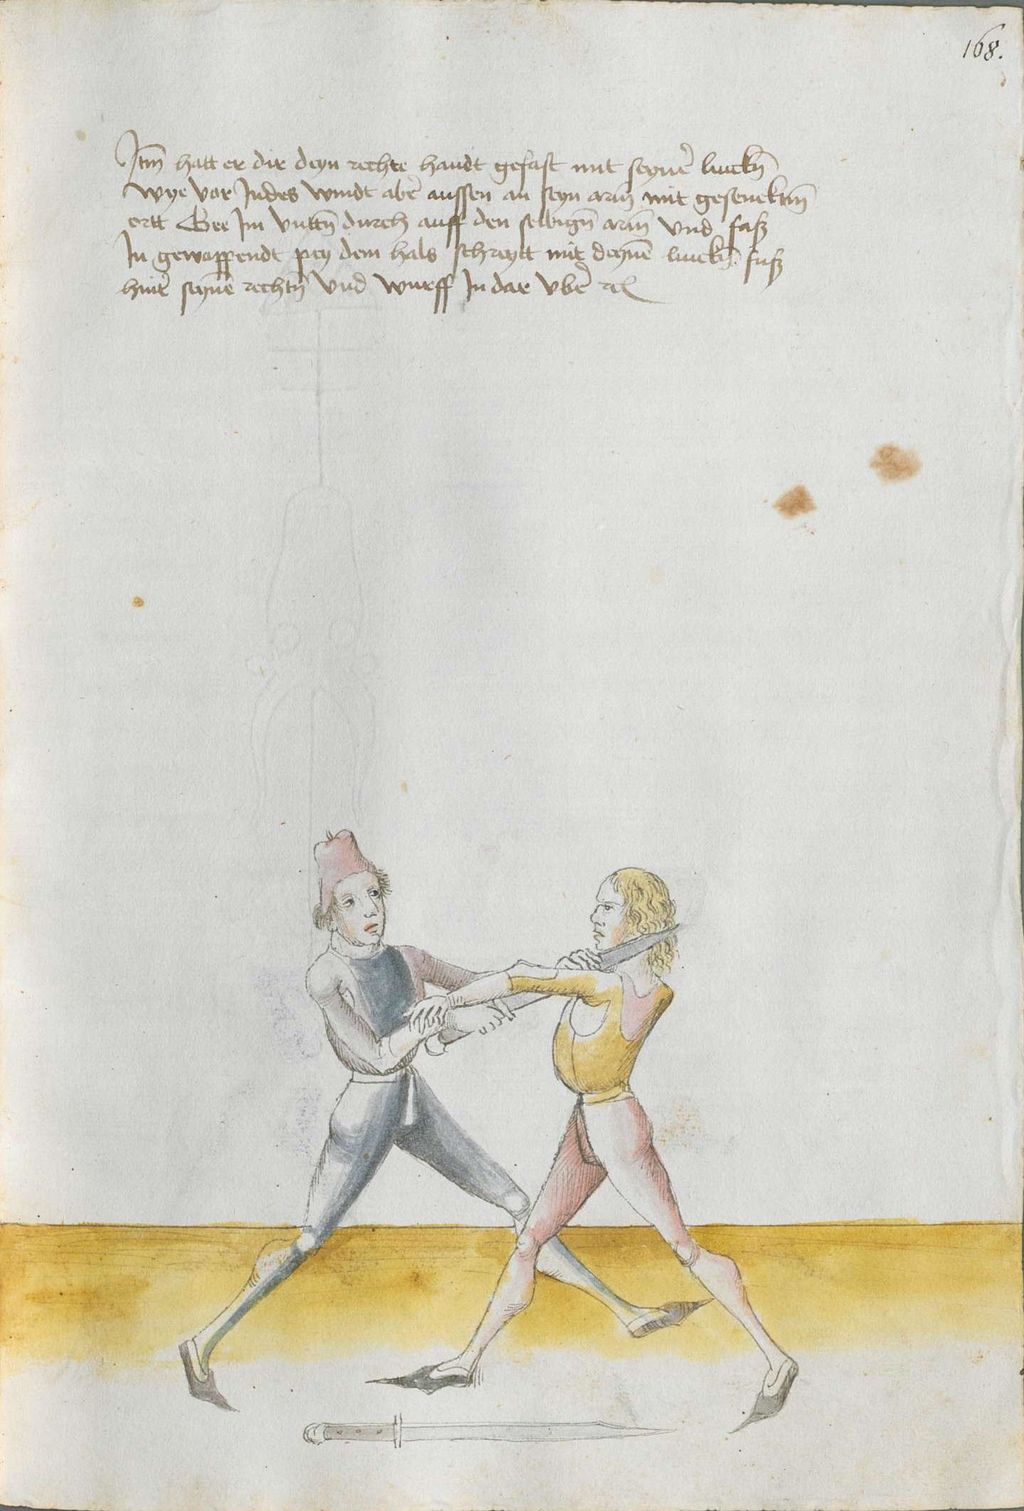 168.
Itm̄ hatt er dir deyn rechte handt gefast mit seyner̄ linckn̄
wye vor Indes windt aber̄ aussen an seyn arm̄ mit gesencktm̄
ortt Gee Im vnttn̄ durch auff den selbign̄ arm̄ vnd faß
In gewappendt pey dem hals schreytt mit deynē linckn̄ fuß
hintr̄ seynē rechtn̄ vnd wurff In dar vber̄ rc